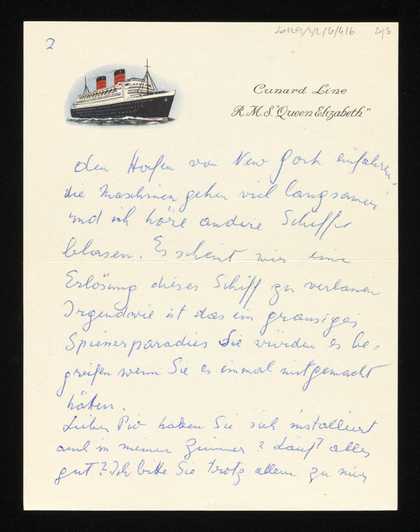 2
2/3
Cunard Line
R.M.S. "Queen Elizabeth"
den Hafen von New York einfahren.
die Maschinen gehen viel langsamer
und ich höre andere Schiffe
blasen. Es scheint mir eine
Erlösung dieses Schiff zu verlassen
Irgendwie ist das ein grausiges
Spiesserparadies Sie würden es be-
greifen wenn Sie es einmal mitgemacht
hätten.
Lieber haben Sie sich installiert
auch in meinem Zimmer? Läuft alles
gut? Ich bitte Sie trotz allem zu mir